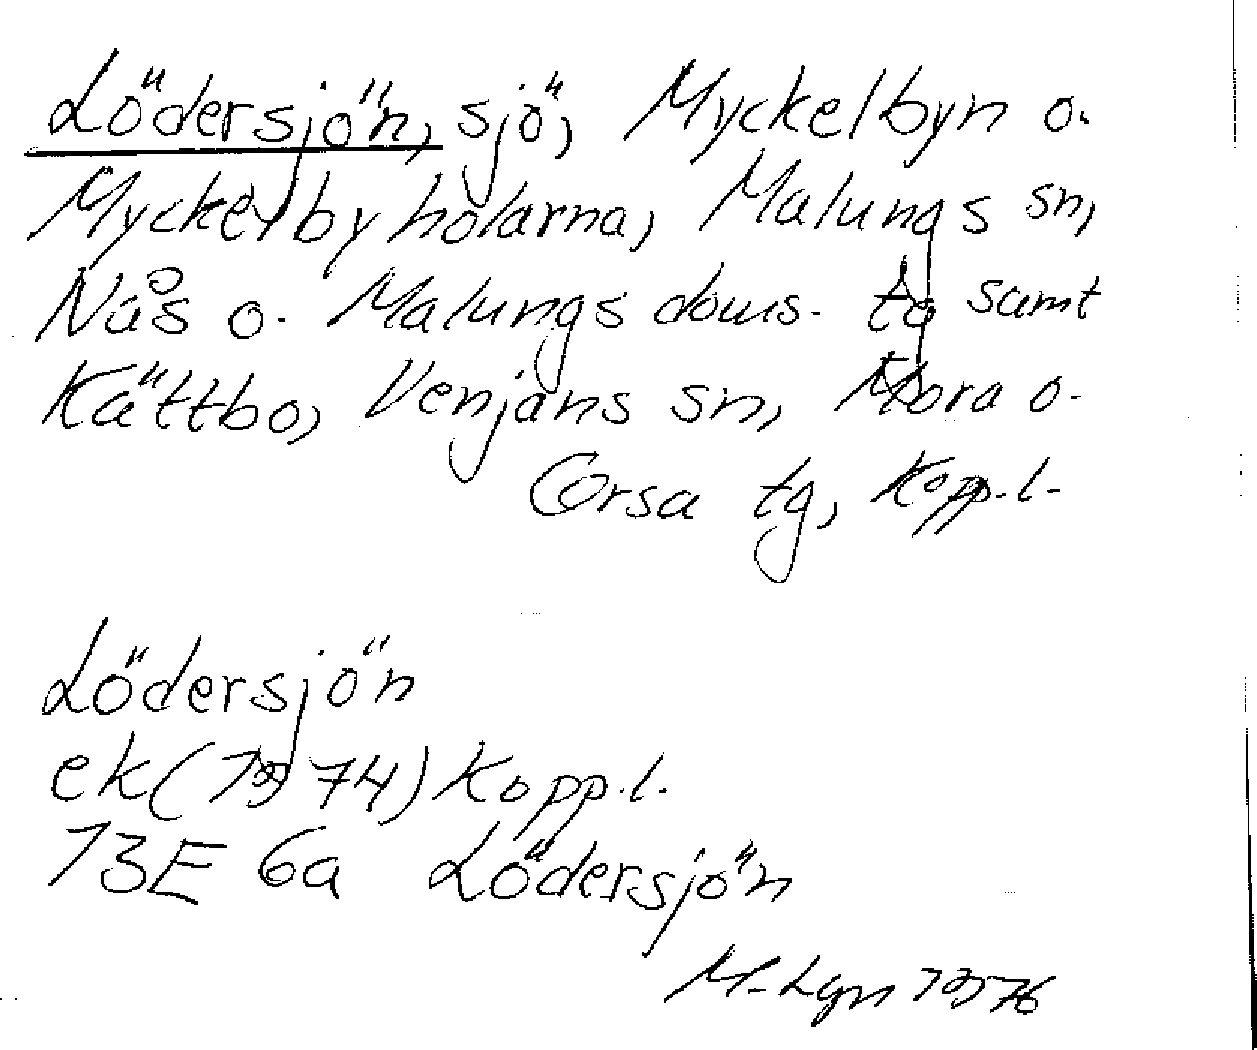 Lödersjön, sjö, Myckelbyn o.
Myckelbyholarna, Malungs sn,
Nås o. Malungs doms. tg samt
Kättbo, Venjans sn, Mora o.
Orsa tg, Kopp.l.
Lödersjön
ek(1974)Kopp.l.
13E 6a Lödersjön
M. 1976